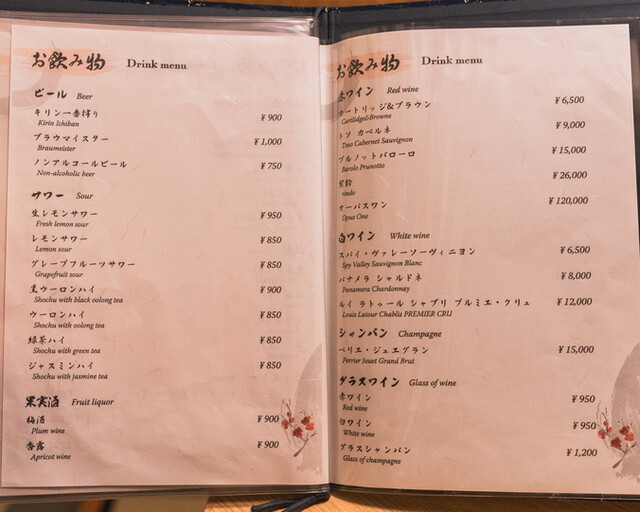 お飲み物 Drink menu
ビール Beer
キリン一番搾り ¥ 900
Kirin Ichiban
ブラウマイスター ¥ 1,000
Braumeister
ノンアルコールビール ¥ 750
Non-alcoholic beer
サワー Sour
生レモンサワー ¥ 950
Fresh lemon sour
レモンサワー ¥ 850
Lemon sour
グレープフルーツサワー ¥ 850
Grapefruit sour
黒ウーロンハイ ¥ 900
Shochu with black oolong tea
ウーロンハイ ¥ 850
Shochu with oolong tea
緑茶ハイ ¥ 850
Shochu with green tea
ジャスミンハイ ¥ 850
Shochu with jasmine tea
果実酒 Fruit liquor
梅酒 ¥ 900
Plum wine
杏露 ¥ 900
Apricot wine
お飲み物 Drink menu
赤ワイン Red wine
カートリッジ&ブラウン ¥ 6,500
Cartlidge&Browne
トソ カベルネ ¥ 9,000
Toso Cabernet Sauvignon
プルノットバローロ ¥ 15,000
Barolo Prunotto
紫鈴 ¥ 26,000
rindo
オーパスワン ¥ 120,000
Opus One
白ワイン White wine
スパイ・ヴァレーソーヴィニヨン ¥ 6,500
Spy Valley Sauvignon Blanc
パナメラ シャルドネ ¥ 8,000
Panamera Chardonnay
ルイ ラトゥール シャブリ プルミエ・クリュ ¥ 12,000
Louis Latour Chablis PREMIER CRU
シャンパン Champagne
ペリエ・ジュエグラン ¥ 15,000
Perrier Jouet Grand Brut
グラスワイン Glass of wine
赤ワイン ¥ 950
Red wine
白ワイン ¥ 950
White wine
グラスシャンパン ¥ 1,200
Glass of champagne